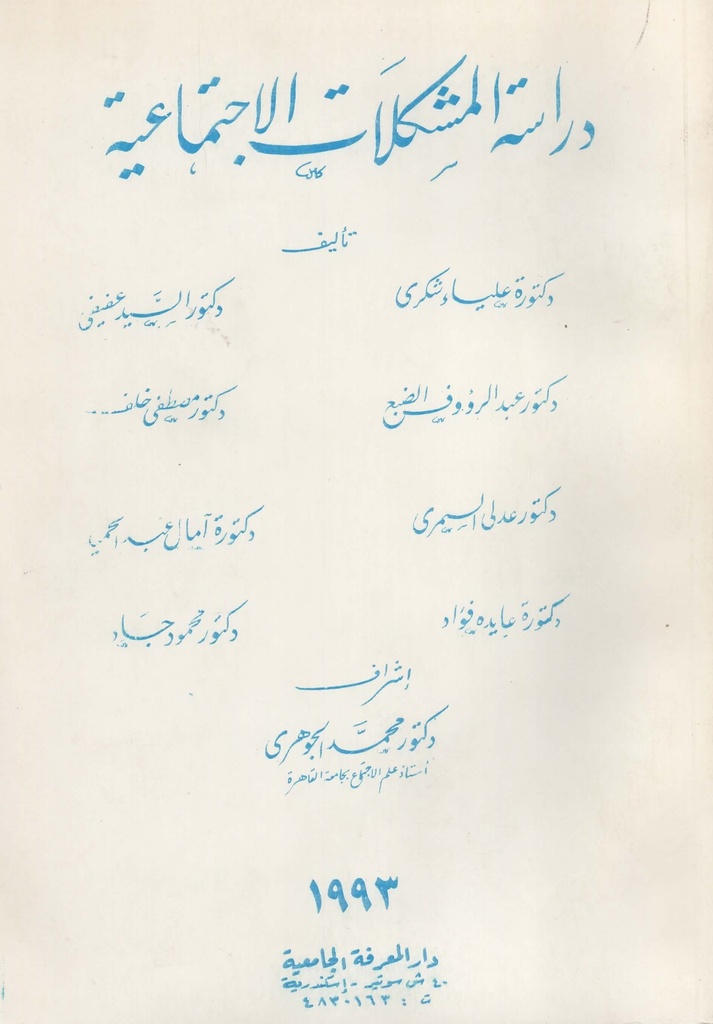 دراسة المشكلات الاجتماعية
تأليف
دكتورة علياء شكرى دكتور السيد عفيفى
دكتور عبد الرؤوف الضبع دكتور مصطفى خلف
دكتور عدلى السمرى دكتورة آمال عبد الحميد
دكتورة عايده فؤاد دكتور محمود جاد
إشراف
دكتور محمد الجوهرى
أستاذ علم الاجتماع بجامعة القاهرة
١٩٩٣
دار المعرفة الجامعية
٤٠ ش سوتير - إسكندرية
ت : ٤٨٣٠١٦٣